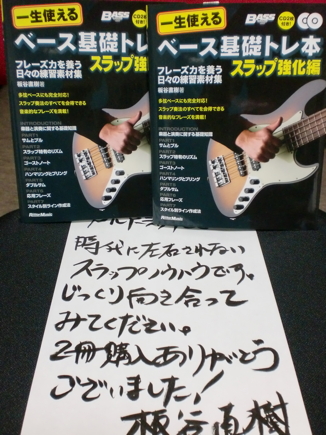 一生使える
BASS
CD2枚付き!
ベース基礎トレ本
フレーズ力を養う
日々の練習素材集
スラップ強化編
板谷直樹 著
多弦ベースにも完全対応!
スラップ奏法のすべてを会得できる
音楽的なフレーズを満載!
INTRODUCTION
楽器と演奏に関する基礎知識
PART1
サムとプル
PART2
スラップ特有のリズム
PART3
ゴーストノート
PART4
ハンマリングとプリング
PART5
ダブルサム
PART6
応用フレーズ
PART7
スタイル別ライン作成法
RittorMusic
一生使える
BASS
CD2枚付き!
ベース基礎トレ本
フレーズ力を養う
日々の練習素材集
スラップ強化編
板谷直樹 著
多弦ベースにも完全対応!
スラップ奏法のすべてを会得できる
音楽的なフレーズを満載!
INTRODUCTION
楽器と演奏に関する基礎知識
PART1
サムとプル
PART2
スラップ特有のリズム
PART3
ゴーストノート
PART4
ハンマリングとプリング
PART5
ダブルサム
PART6
応用フレーズ
PART7
スタイル別ライン作成法
RittorMusic
時代に左右されない
スラップノウハウです。
じっくり向き合って
みてください。
2冊購入ありがとう
ございました!
板谷直樹